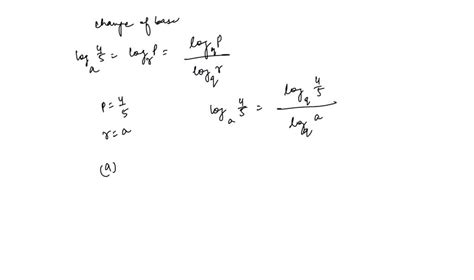 change of base
log_a 4/5 = log_r P = log_q P / log_q r
P = 4/5
r = a
log_a 4/5 = log_q 4/5 / log_q a
(a)